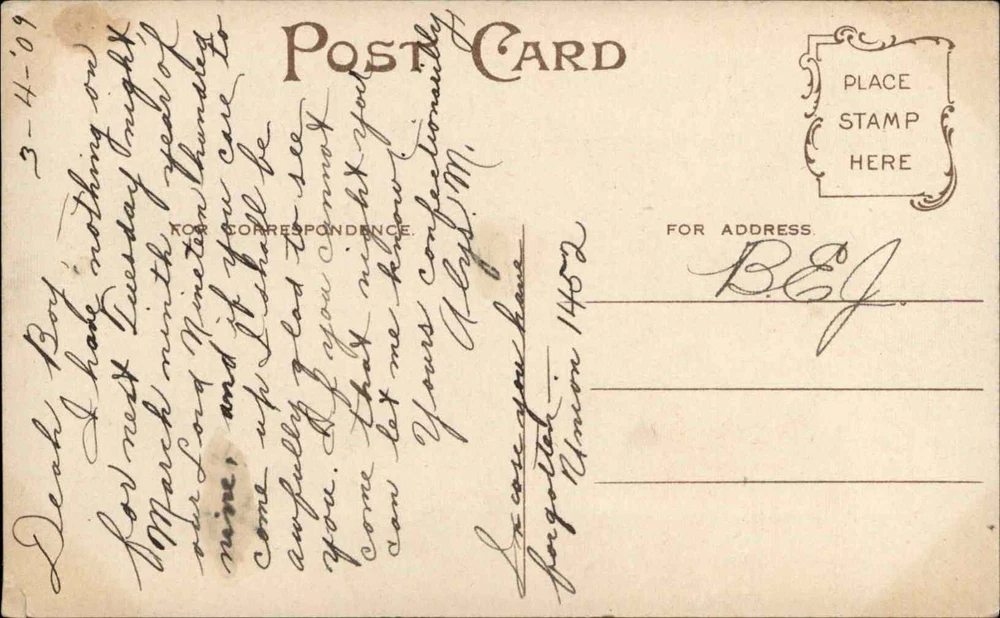 POST CARD
PLACE
STAMP
HERE
FOR CORRESPONDENCE.
FOR ADDRESS.
3-4-'09
Deah Boy
I have nothing on
for next Tuesday night
March ninth year of
our Lord Nineteen hundred
nine, and if you care to
come up I shall be
awfully glad to see
you. If you cannot
come that night you
can let me know
Yours confectionarilly
Alys. M.
In case you have
forgotten—
Union 1452
B.E.J.